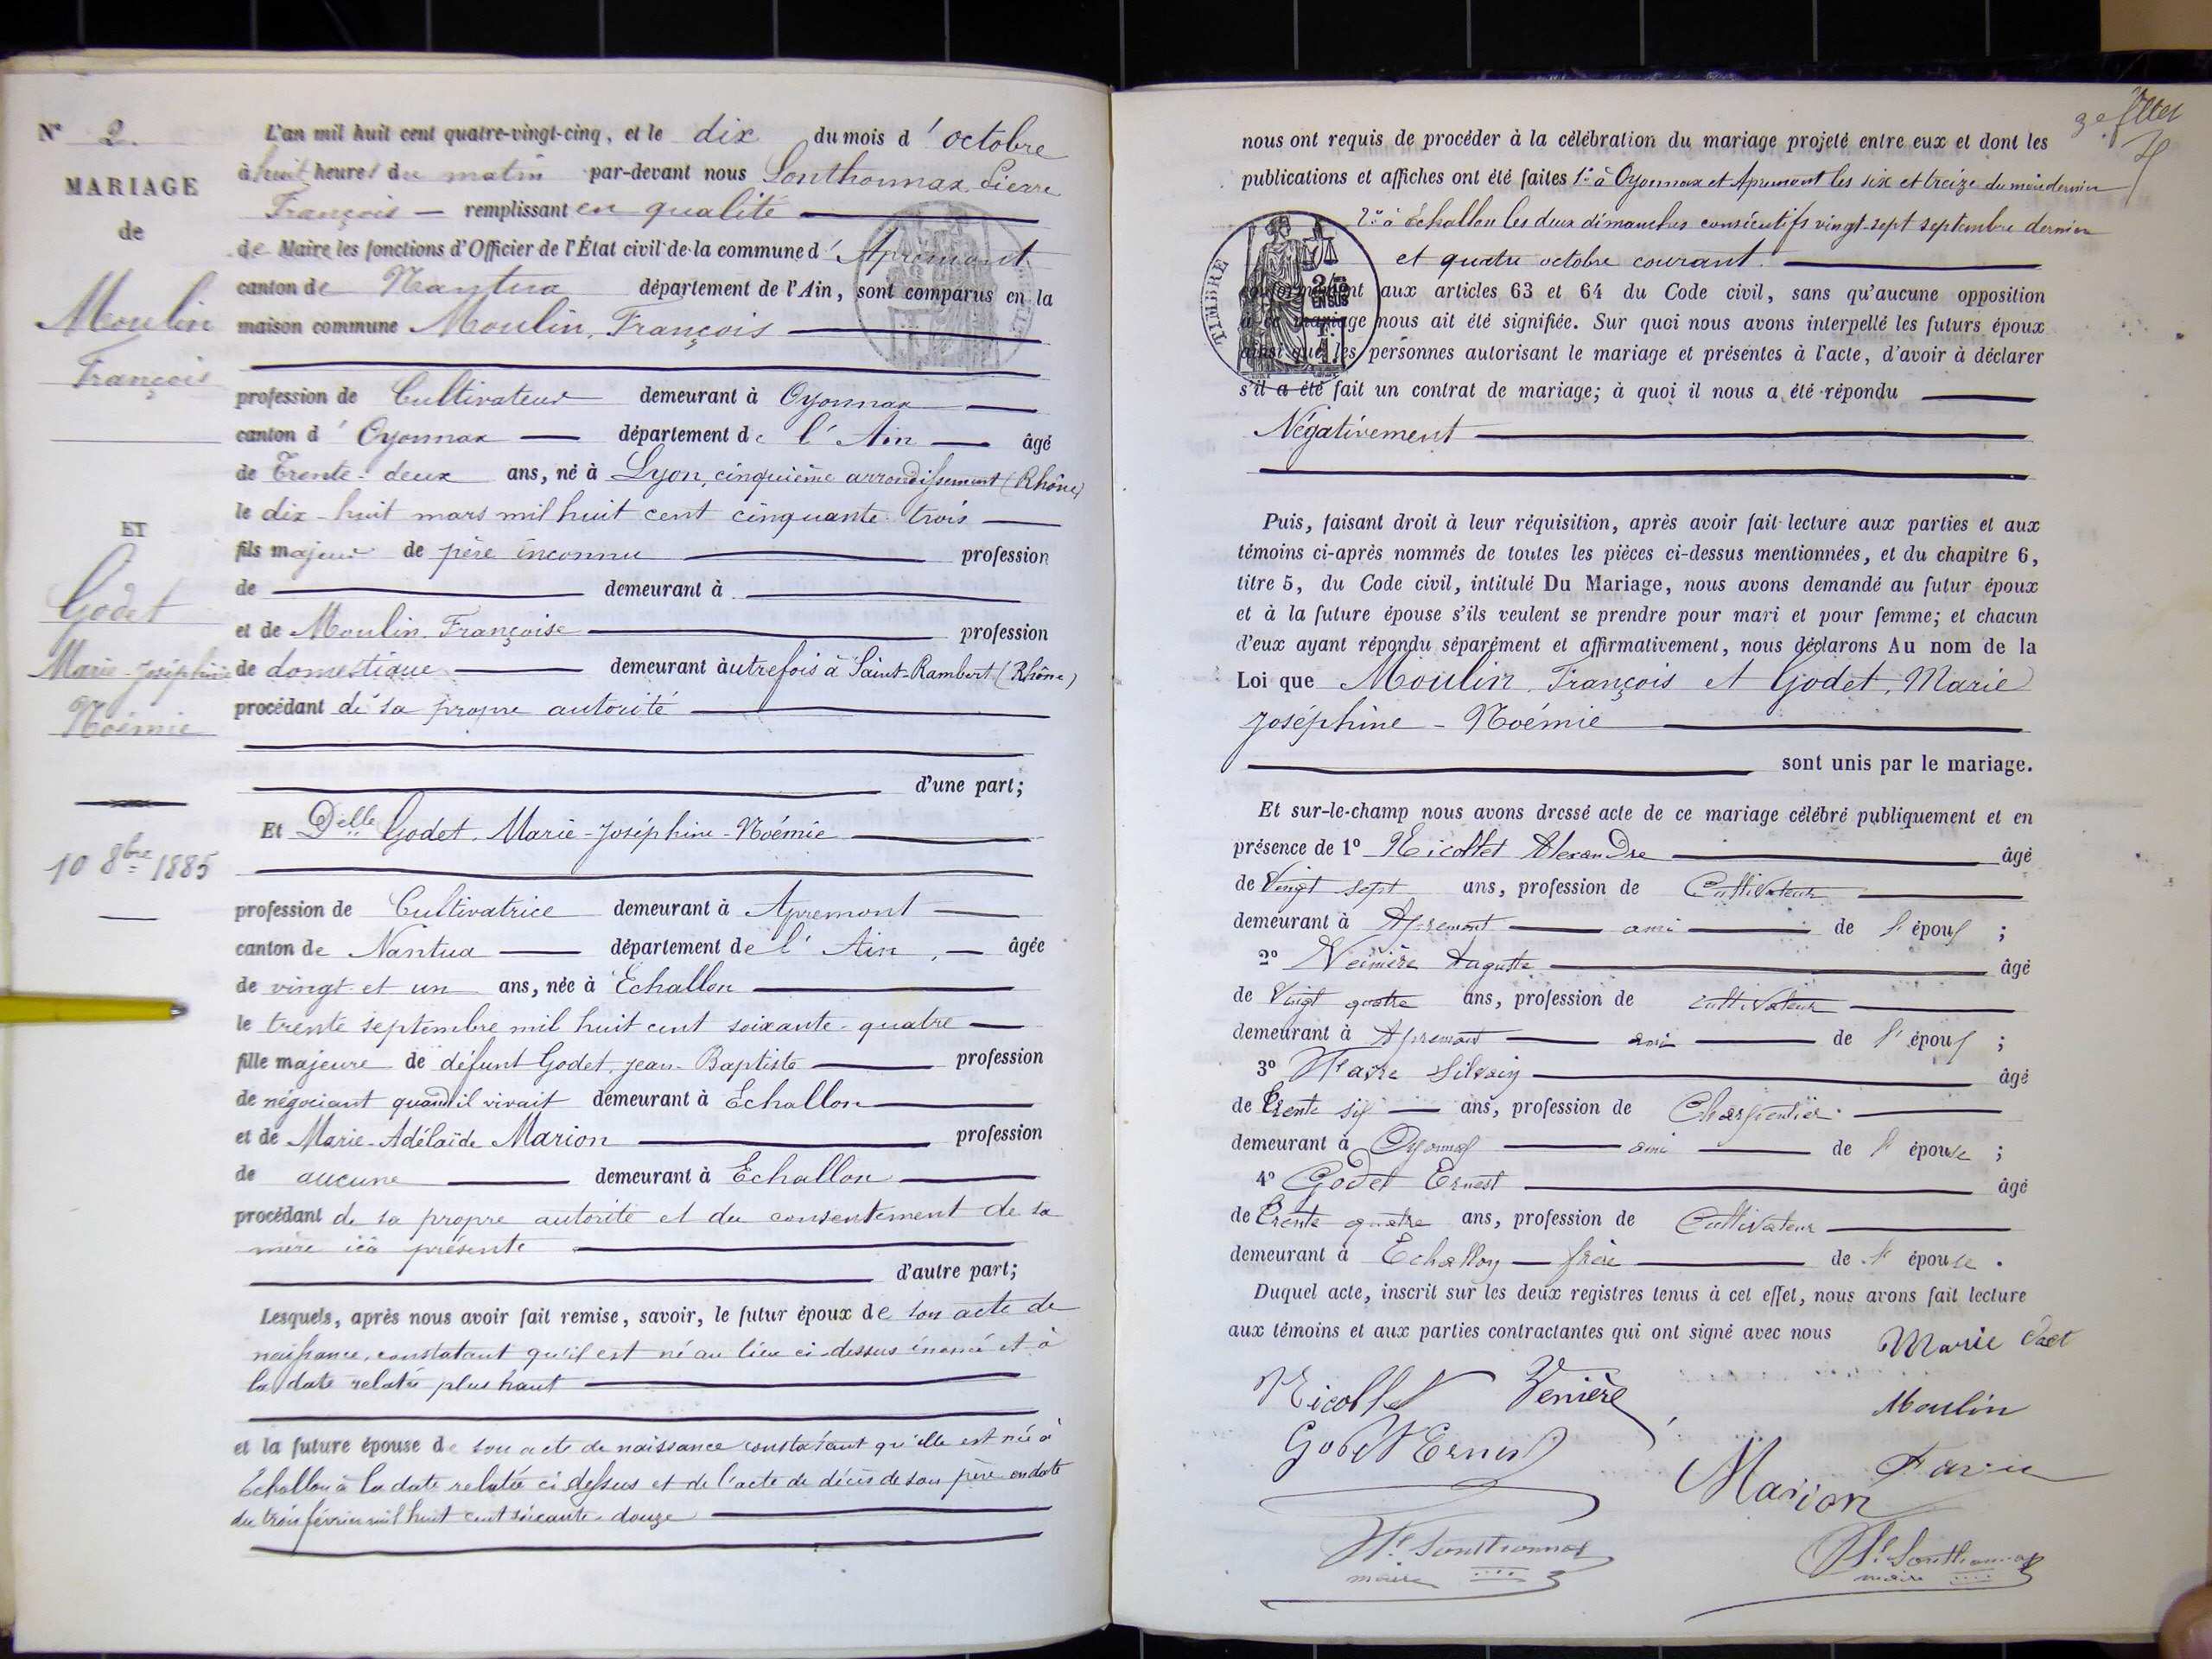 N° 2.
MARIAGE
de
Moulin
François
ET
Godet
Marie-Joséphine
Noémie
10 8bre 1885
L'an mil huit cent quatre-vingt-cinq, et le dix du mois d'octobre
à huit heures du matin par-devant nous Sonthonnax Pierre
François remplissant en qualité
de Maire les fonctions d'Officier de l'État civil de la commune d'Apremont
canton de Nantua département de l'Ain, sont comparus en la
maison commune Moulin, François
profession de Cultivateur demeurant à Oyonnax
canton d'Oyonnax département de l'Ain âgé
de Trente-deux ans, né à Lyon, cinquième arrondissement (Rhône)
le dix-huit mars mil huit cent cinquante-trois
fils majeur de père inconnu profession
de demeurant à
et de Moulin, Françoise profession
de domestique demeurant autrefois à Saint-Rambert (Rhône)
procédant de sa propre autorité
d'une part;
Et Delle Godet, Marie-Joséphine-Noémie
profession de Cultivatrice demeurant à Apremont
canton de Nantua département de l'Ain, âgée
de vingt-et un ans, née à Echallon
le trente septembre mil huit cent soixante-quatre
fille majeure de défunt Godet, Jean-Baptiste profession
de négociant quand il vivait demeurant à Echallon
et de Marie-Adélaïde Marion profession
de aucune demeurant à Echallon
procédant de sa propre autorité et du consentement de sa
mère ici présente
d'autre part;
Lesquels, après nous avoir fait remise, savoir, le futur époux de son acte de
naissance, constatant qu'il est né au lieu ci-dessus énoncé et à
la date relatée plus haut
et la future épouse de son acte de naissance constatant qu'elle est née à
Echallon à la date relatée ci-dessus et de l'acte de décès de son père en date
du trois février mil huit cent soixante-douze
3e
nous ont requis de procéder à la célébration du mariage projeté entre eux et dont les
publications et affiches ont été faites 1° à Oyonnax et Apremont les six et treize du mois dernier
2° à Échallon les deux dimanches consécutifs vingt-sept septembre dernier
et quatre octobre courant.
TIMBRE
2/10
EN SUS
1 F.
conformément aux articles 63 et 64 du Code civil, sans qu'aucune opposition
à ce mariage nous ait été signifiée. Sur quoi nous avons interpellé les futurs époux
ainsi que les personnes autorisant le mariage et présentes à l'acte, d'avoir à déclarer
s'il a été fait un contrat de mariage; à quoi il nous a été répondu
Négativement
Puis, faisant droit à leur réquisition, après avoir fait lecture aux parties et aux
témoins ci-après nommés de toutes les pièces ci-dessus mentionnées, et du chapitre 6,
titre 5, du Code civil, intitulé Du Mariage, nous avons demandé au futur époux
et à la future épouse s'ils veulent se prendre pour mari et pour femme; et chacun
d'eux ayant répondu séparément et affirmativement, nous déclarons Au nom de la
Loi que Moulin, François et Godet, Marie
Joséphine-Noémie
sont unis par le mariage.
Et sur-le-champ nous avons dressé acte de ce mariage célébré publiquement et en
présence de 1° Nicollet Alexandre âgé
de Vingt sept ans, profession de Cultivateur
demeurant à Apremont ami de l'époux ;
2° Auguste âgé
de Vingt quatre ans, profession de cultivateur
demeurant à Apremont ami de l'époux ;
3° Favre Silvain âgé
de Trente six ans, profession de Charpentier
demeurant à Oyonnax ami de l'épouse ;
4° Godet Ernest âgé
de Trente quatre ans, profession de Cultivateur
demeurant à Echallon frère de l'épouse .
Duquel acte, inscrit sur les deux registres tenus à cet effet, nous avons fait lecture
aux témoins et aux parties contractantes qui ont signé avec nous Marie
Nicollet Venière Moulin
Godet Ernest Marion Favre
Sonthonnax
maire
Sonthonnax
maire